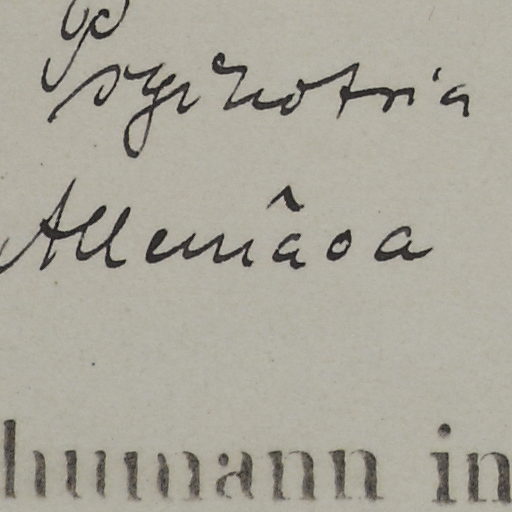 Psychotria
Allemâoa
humann in